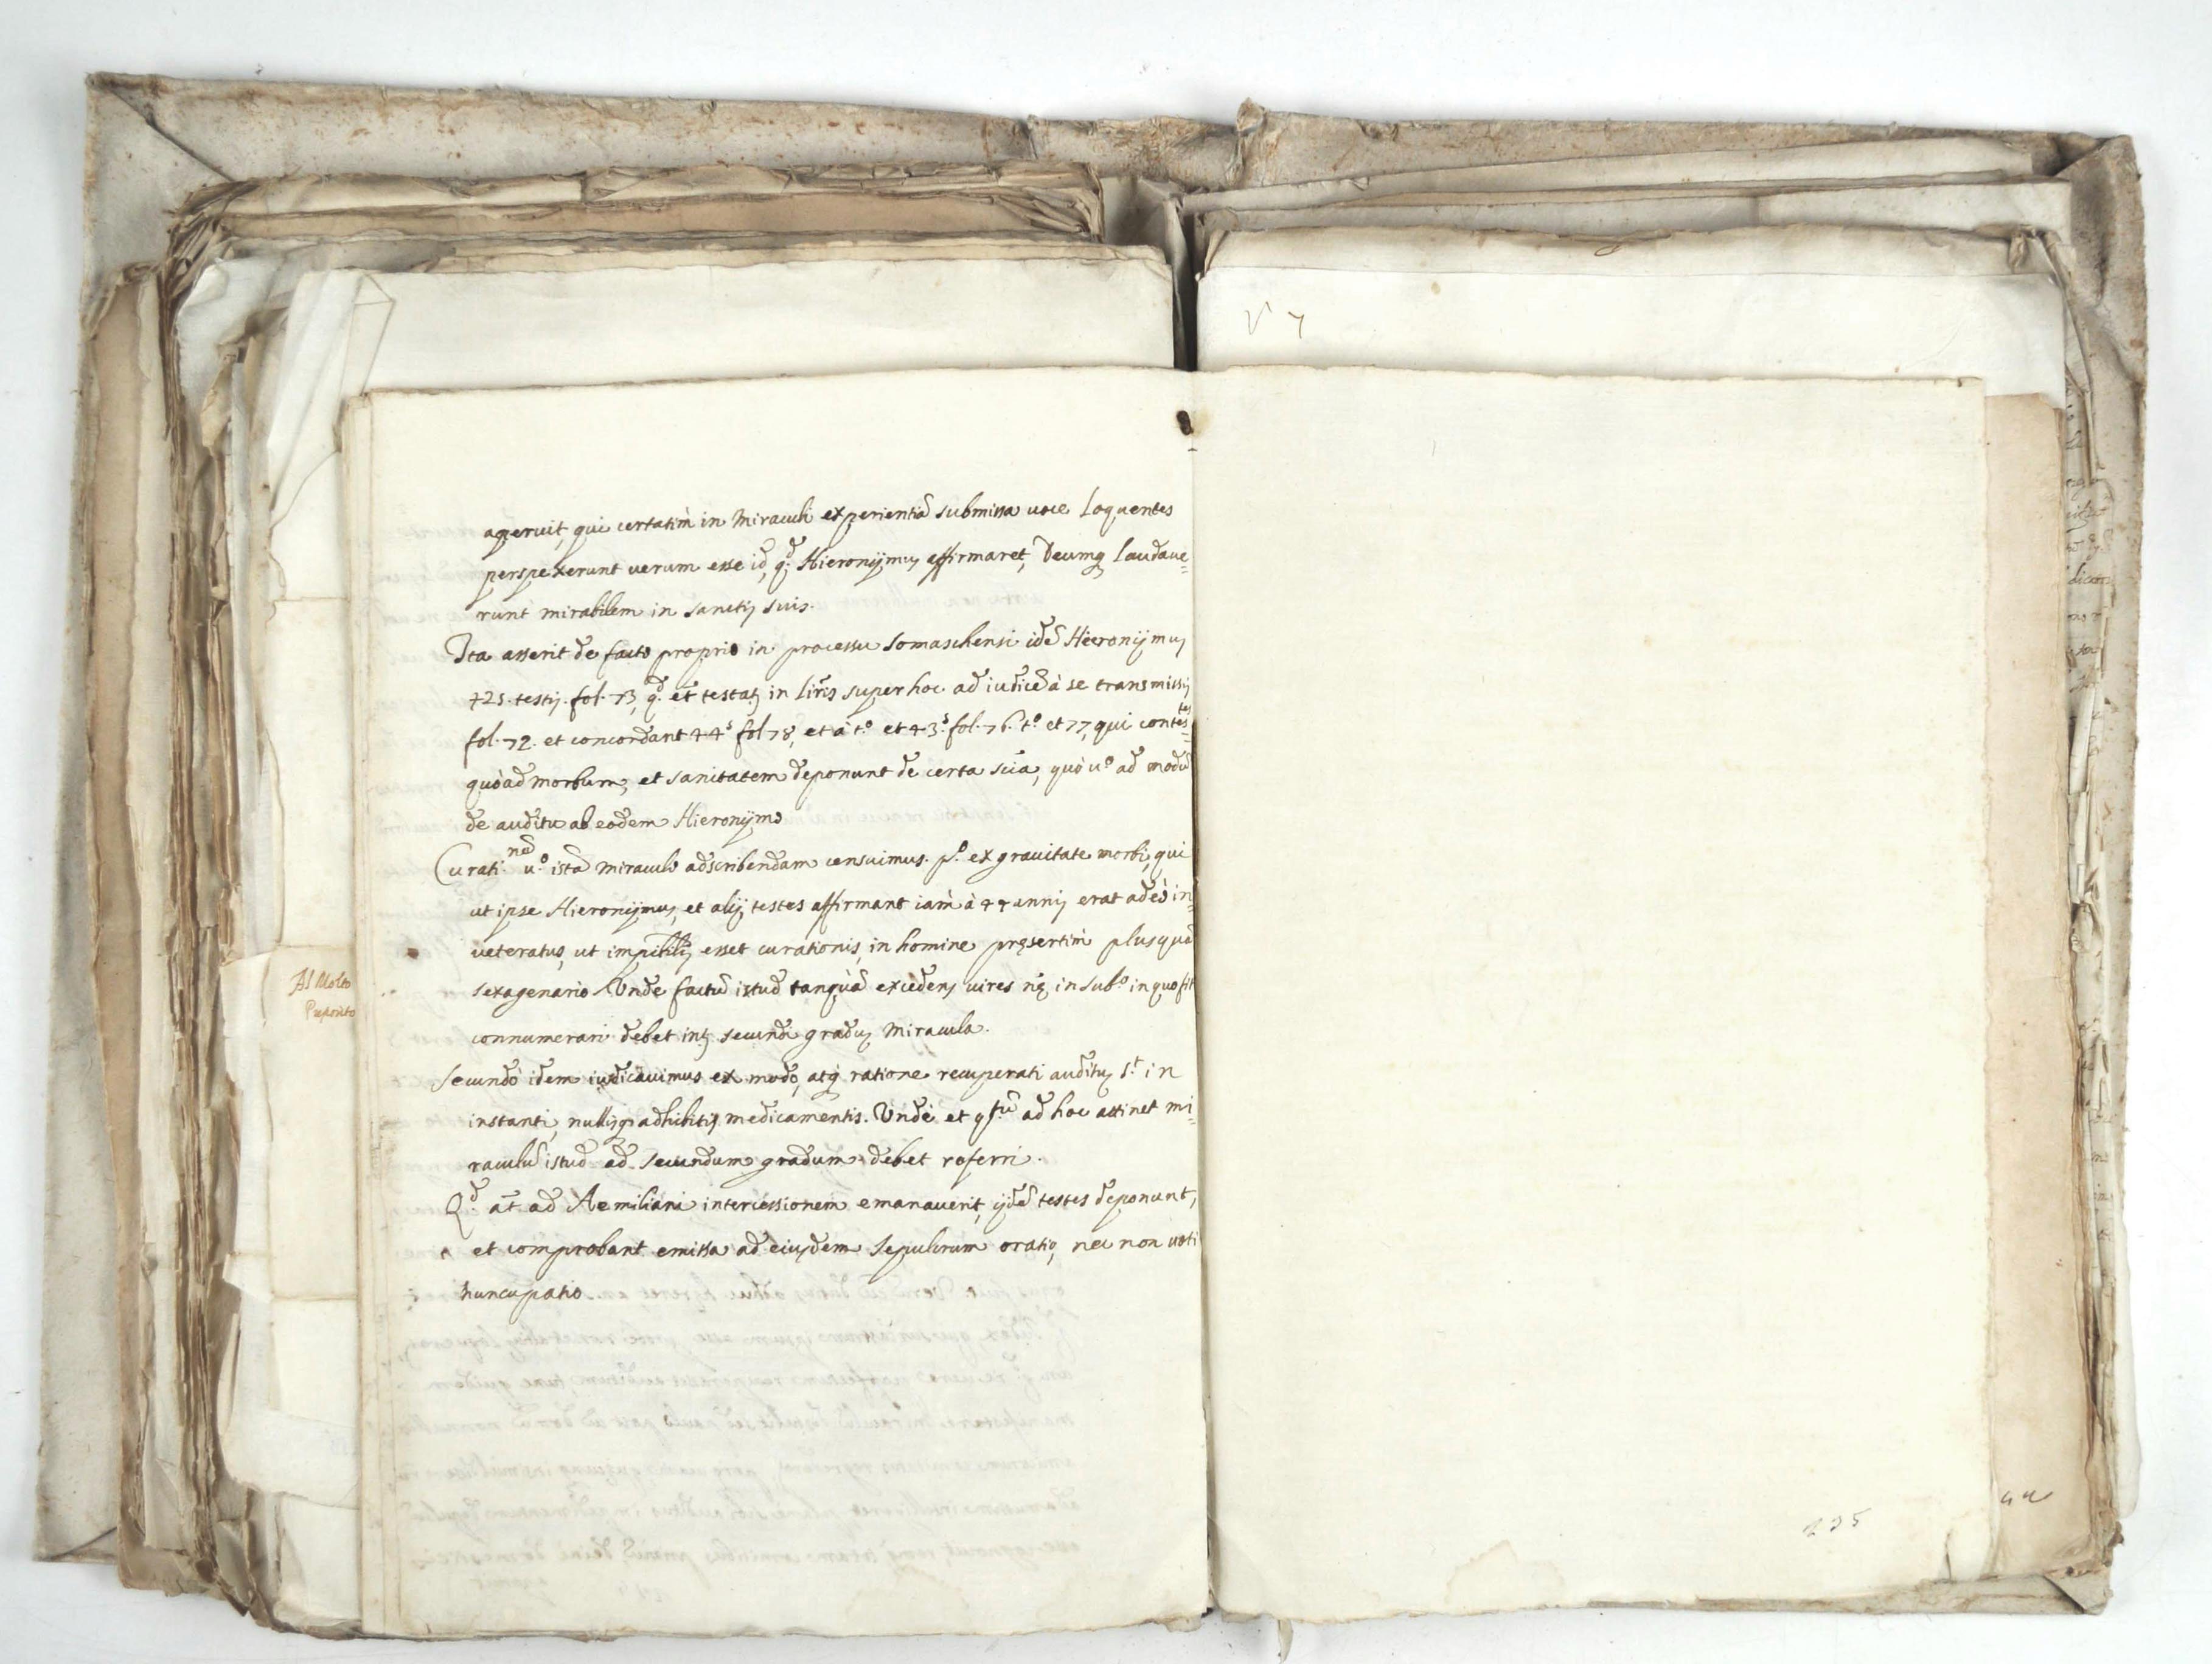 aperuit, qui certatim in Miraculi experientiā submissa uoce loquentes
perspexerunt uerum esse id, qd. Hieronymus affirmaret, Deumq laudaue=
runt mirabilem in sanctis suis.
Ita asserit de facto proprio in processu Somaschensi idē Hieronijmus
42s. testis. fol. 73, qd. et testatr in lrīs super hoc ad iudicē à se transmissis
fol. 72. et concordant 44s fol 78, et à to et 43s. fol. 76. to et 77, qui contes=tes
quò ad morbum, et sanitatem deponunt de certa scīa, quò uo ad modū
de auditu ab eodem Hieronijmo
Curati.nē uo. istā miraculo adscribendam censuimus. po ex grauitate morbi, qui
ut ipse Hieronijmus, et alij testes affirmant iam à 44 annis erat adeò in=
ueteratus, ut impībilis esset curationis, in homine pręsertim plusquā
sexagenario Unde factū istud tanquā excedens uires nę in subo in quo fit
connumerari debet intr secundi gradus Miracula.
Secundò idem iudicauimus ex modo, atq ratione recuperati auditus st. in
instanti, nullisq adhibitis medicamentis. Undè et qtū ad hoc attinet mi=
raculū istud ad secundum gradum debet referri.
Qd. at ad Aemiliani intercessionem emanauerit, ijdē testes deponunt,
et comprobant emissa ad eiusdem Sepulcrum oratio, nec non uoti
nuncupatio
Al Molto
Preposito
235